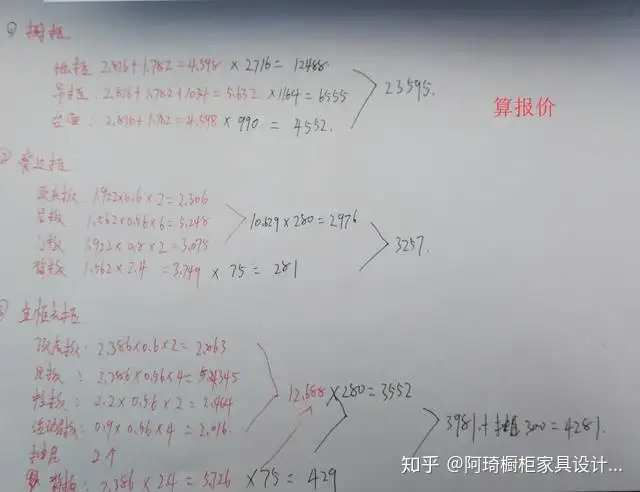 ① 橱柜
地柜 2.816+1.782=4.598 × 2716= 12488
吊柜 2.816+1.782+1.034=5.632 ×1164=6555
23595.
台面: 2.816+1.782=4.598 × 990 = 4552.
算报价
②
顶底板 1.922×0.6×2=2.306
层板 1.562×0.56×6=5.248
10.629×280=2976
门板 1.922×0.8×2=3.075
3257.
背板 1.562×2.4 =3.749 × 75 = 281
③
顶底板: 2.386×0.6×2=2.863
层板: 2.386×0.56×4=5.345
12.688×280=3552
2.2×0.56×2=2.464
0.9×0.56×4=2.016.
3981.+抽屉300=4281.
抽屉 2个
背板: 2.386×2.4=5.726 ×75=429
知乎 @阿琦橱柜家具设计...